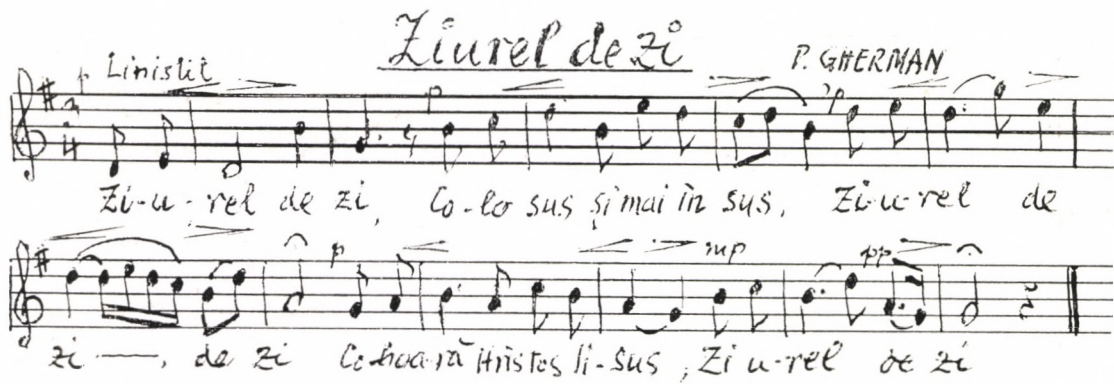 Ziurel de zi
p Linistit P. GHERMAN
3
4
p p
Zi-u-rel de zi, Co-lo sus și mai în sus, Zi-u-rel de
p mp pp
zi —, de zi Co-boa-ră Hristos Ii-sus, Zi u-rel de zi